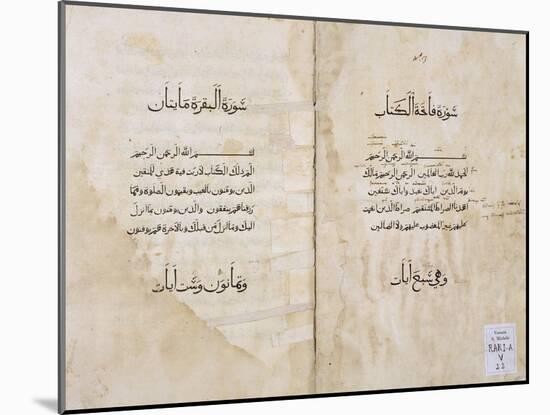 سورة فاتحة الكتاب
بسم الله الرحمن الرحيم
الحمد لله رب العالمين الرحمن الرحيم مالك
يوم الدين اياك نعبد واياك نستعين
اهدنا الصراط المستقيم صراط الدين انعمت
عليهم غير المغضوب عليهم ولا الضالين
وهي سبع ايات
سورة البقرة مايتان
بسم الله الرحمن الرحيم
الم دلك الكتاب لا ريب فيه هدى للمتقين
الدين يومنون بالغيب ويقيمون الصلوة ومما
رزقناهم ينفقون والدين يومنون بما انزل
اليك وما انزل من قبلك وبالاخرة هم يوقنون
وثمانون وست ايات
S. Michele
RARI-A
V
22